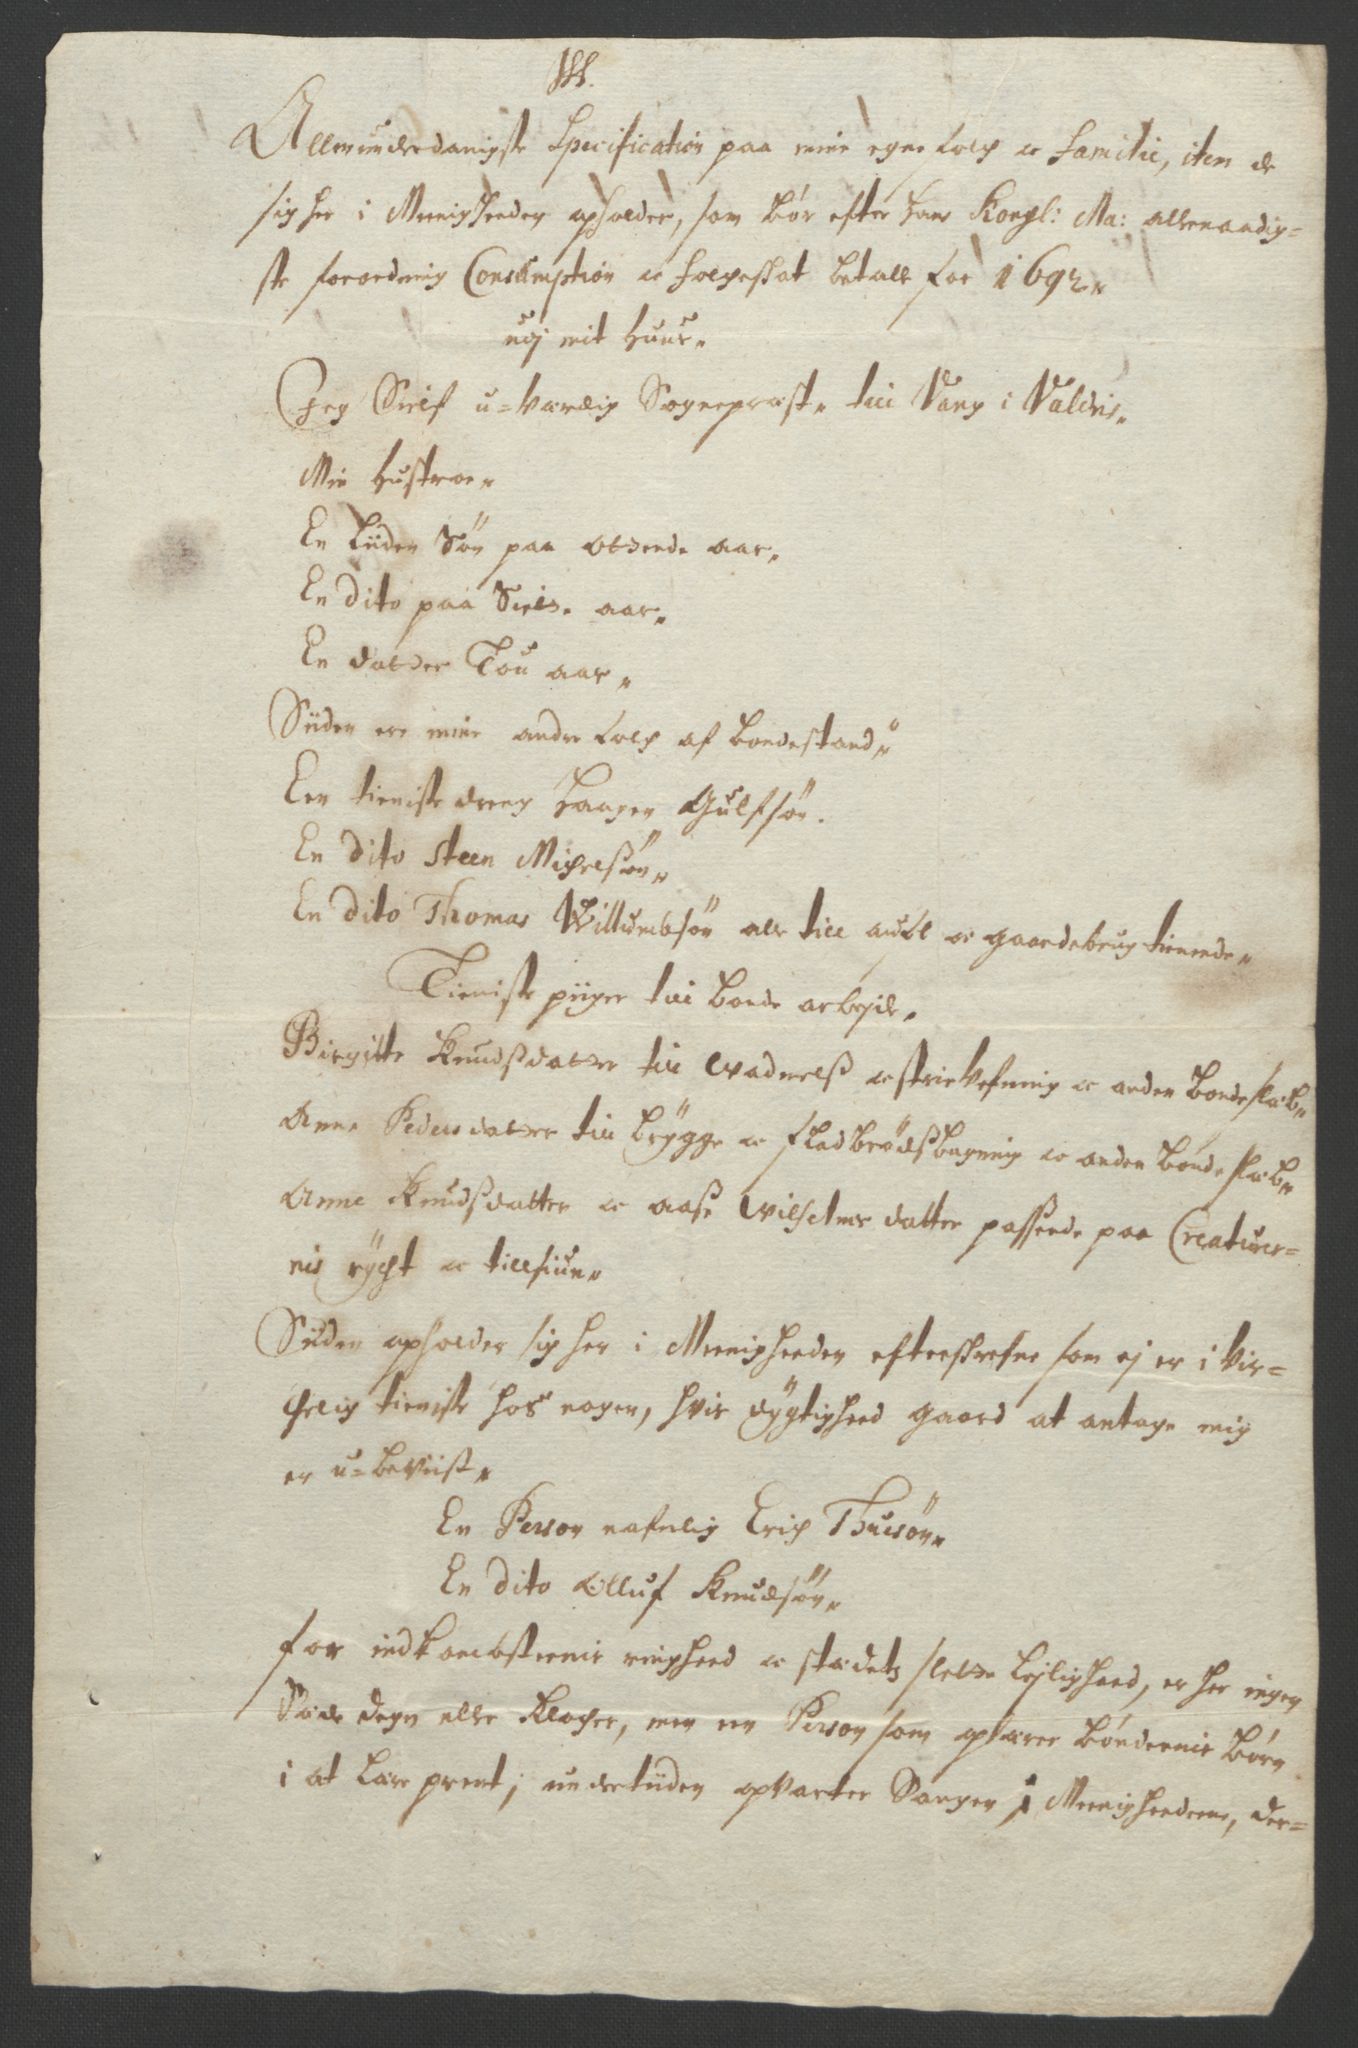 Allerunderdanigste Specification paa mine egne Folch oc Familie, item de
sig her i Meenigheeden opholder, som bør efter hans Kongl: Ma: allernaadig=
ste forordning Consumption oc Folcheskat betalle for 1692„
udj mit Huus„
Jeg Sielf u=værdig Sogneprest„ till Vang i Valdris„
Min Hustroe„
En liiden Søn paa ottende aar„
En dito paa Siette aar„
En datter Tou aar„
Siiden ere mine andre folch af bondestand„
Een tieniste dreng Haagen Gulfsøn.
En dito Steen Michelsøn„
En dito Thomas Willumbsøn alle till aufl oc gaardsbrug tienende„
Tieniste piiger till bonde arbejde„
Birgitte Knudsdatter till Wadmelß oc strie Vefning oc anden bonde slæb„
Anne Pedersdatter till brygge oc fladbrødsbagning oc anden bonde slæb„
Anne Knudsdatter oc Aaße Wilhelms datter passende paa Creaturer=
nis rycht oc tillsiun„
Siiden opholder sig her i Meenigheeden efterskrefne som ej er i vir=
chelig tieniste hos nogen, hvis dygtigheed gaard at antage mig
er u=beviist„
En Person nafnlig Erich Thuesøn„
En dito Olluf Knudsøn„
for indkombsternis ringheed oc stædets slette lejligheed, er her ingen
Sæde degn eller Klocher, men en Person som oplærer bøndernis børn
i at læse prent, undertiiden opvarter Sangen i Meenigheederne, der=